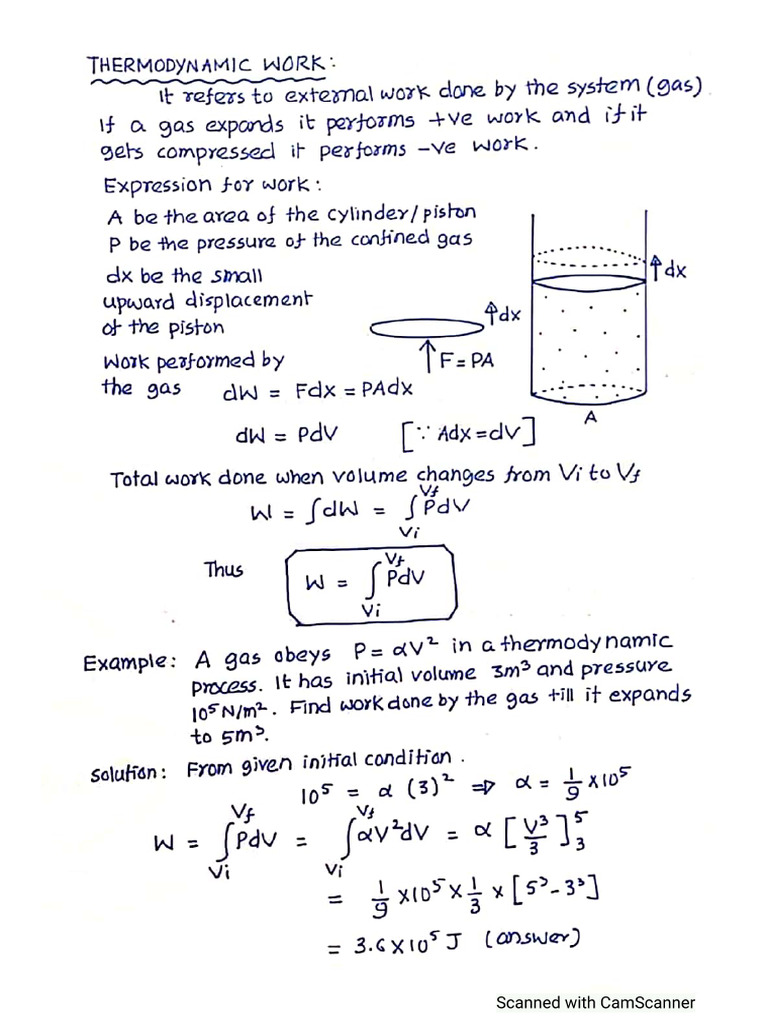 THERMODYNAMIC WORK:
It refers to external work done by the system (gas)
If a gas expands it performs +ve work and if it
gets compressed it performs -ve work.
Expression for work:
A be the area of the cylinder/piston
P be the pressure of the confined gas
dx be the small
upward displacement
of the piston
dx
F = PA
dx
A
Work performed by
the gas dW = Fdx = PAdx
dW = PdV [∵ Adx = dV]
Total work done when volume changes from Vi to Vf
W = ∫dW = ∫_{Vi}^{Vf} PdV
Thus W = ∫_{Vi}^{Vf} PdV
Example: A gas obeys P = αV² in a thermodynamic
process. It has initial volume 3m³ and pressure
10⁵ N/m². Find work done by the gas till it expands
to 5m³.
Solution: From given initial condition.
10⁵ = α (3)² ⇒ α = 1/9 × 10⁵
W = ∫_{Vi}^{Vf} PdV = ∫_{Vi}^{Vf} αV²dV = α [V³/3]_3^5
= 1/9 × 10⁵ × 1/3 × [5³ - 3³]
= 3.6 × 10⁵ J (answer)
Scanned with CamScanner